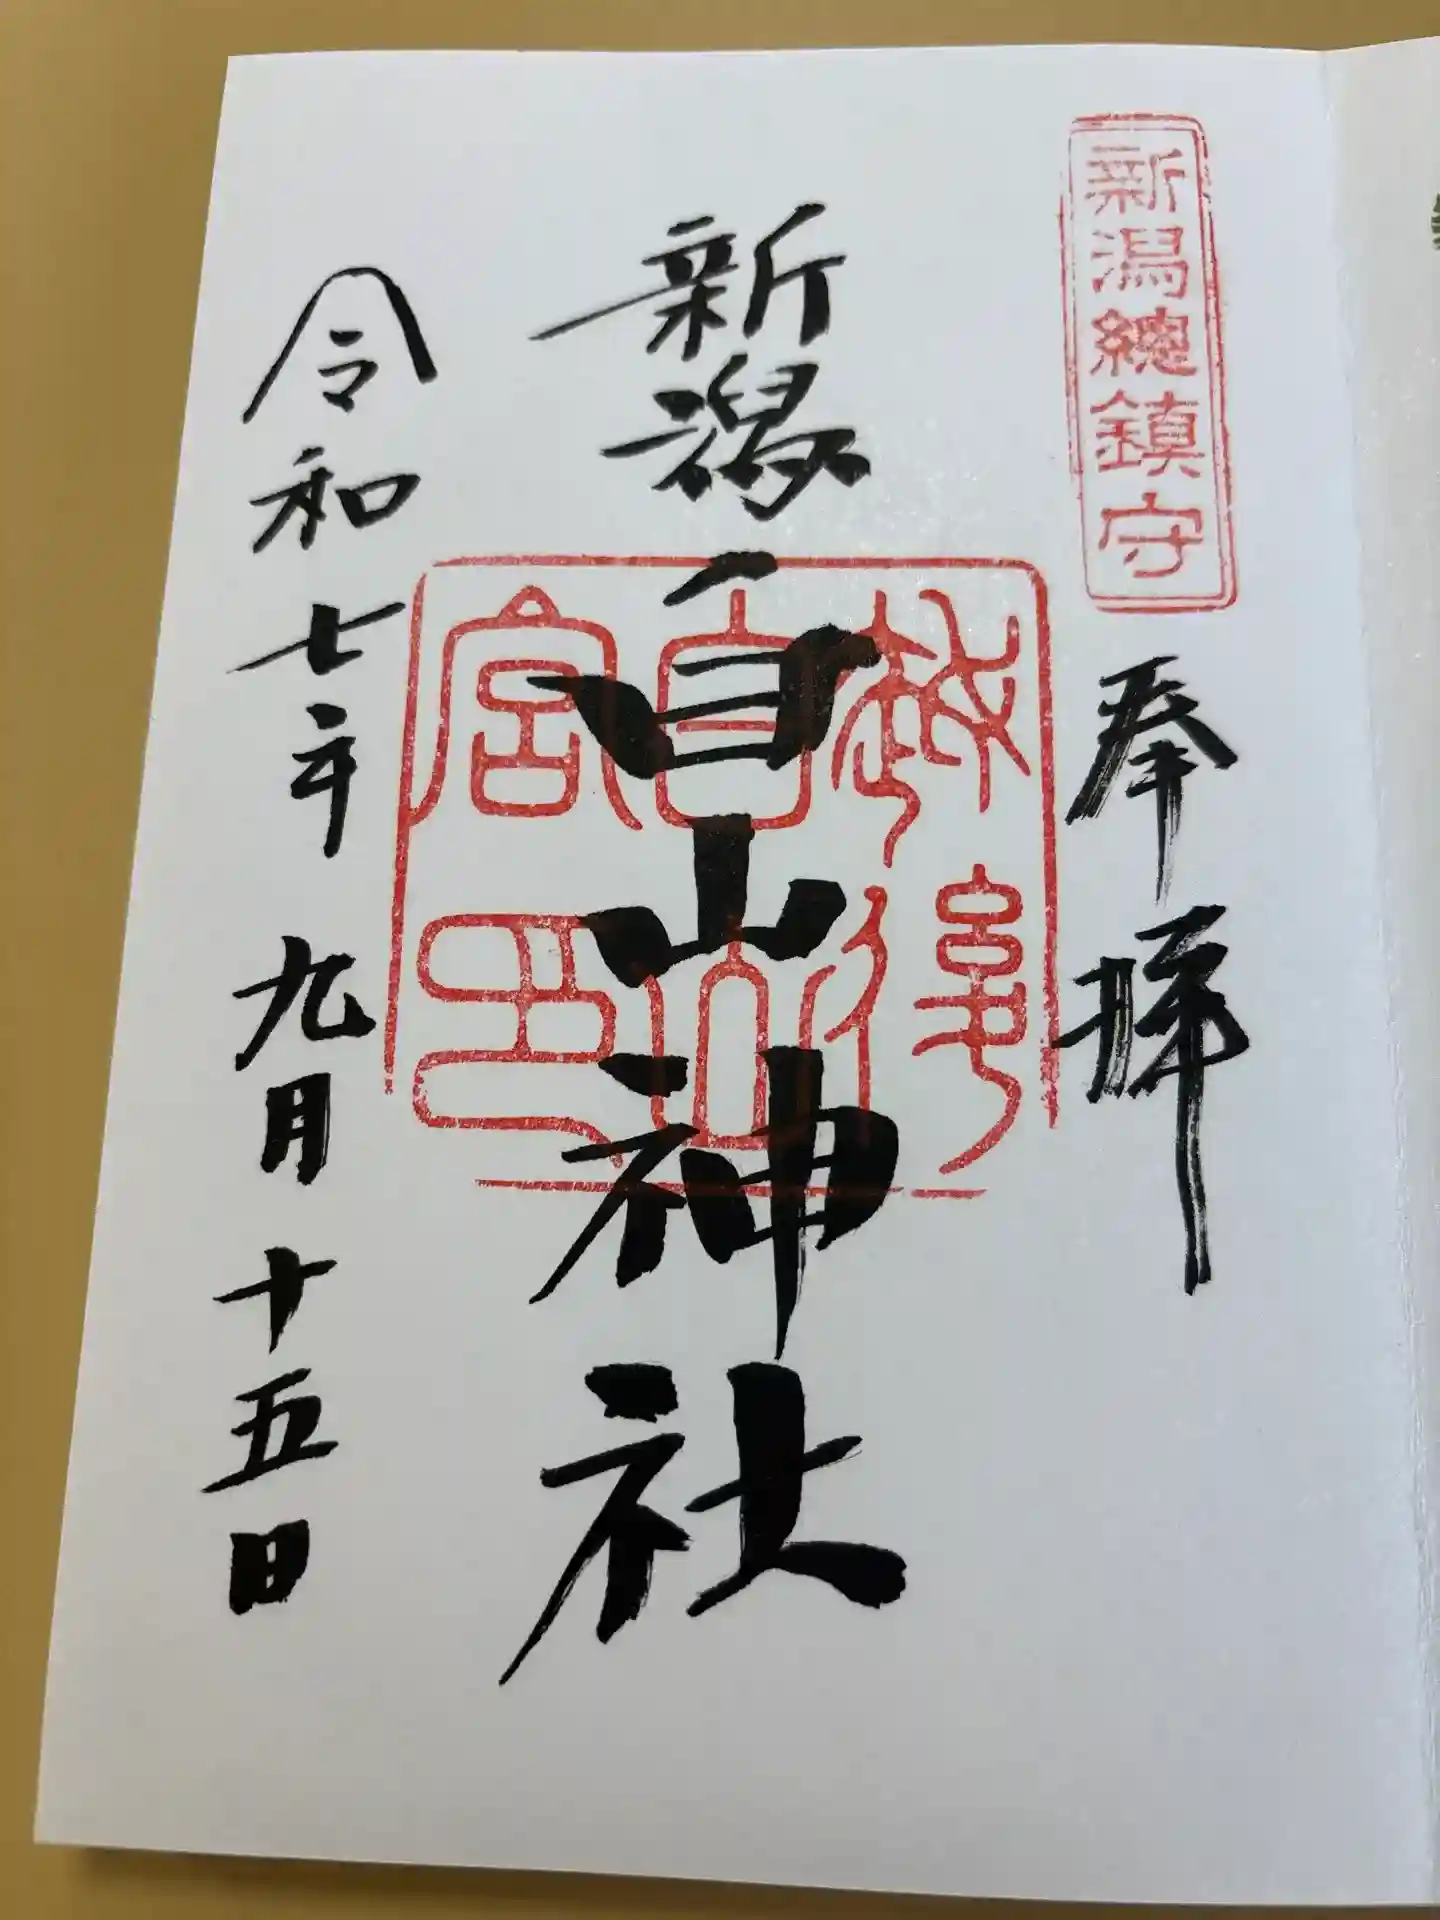 新潟總鎮守
奉拝
新潟白山神社
越後
白山
宮印
令和七年九月十五日